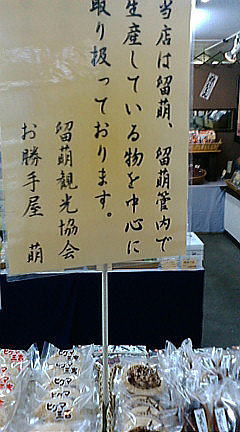 当店は留萌、留萌管内で
生産している物を中心に
取り扱っております。
留萌観光協会
お勝手屋 萌